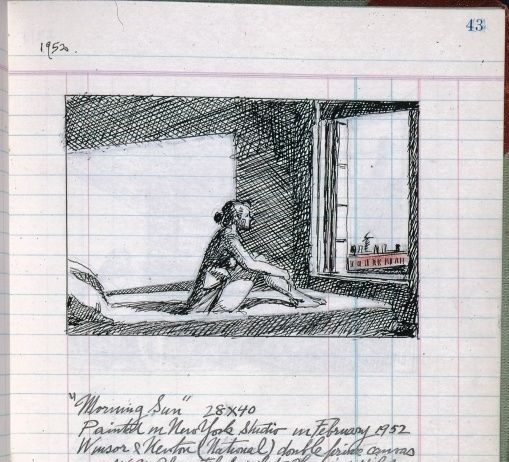 43
1952.
"Morning Sun" 28x40
Painted in New York Studio in February 1952
Winsor & Newton (National) double prime canvas